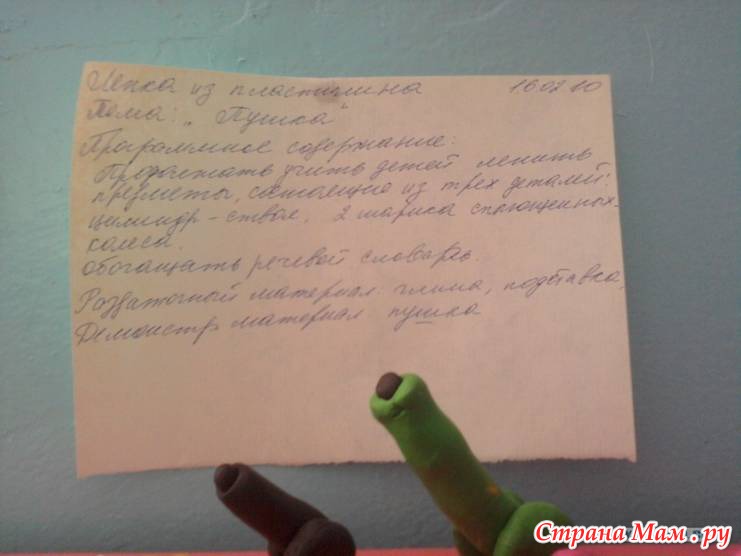 Лепка из пластилина 16.02.10
Тема: „Пушка"
Программное содержание:
Продолжать учить детей лепить
предметы, состоящие из трех деталей:
цилиндр - ствол, 2 шарика сплющенных-
колеса.
обогащать речевой словарь.
Раздаточный материал: глина, подставка,
Демонстр материал пушка
Страна Мам.ру